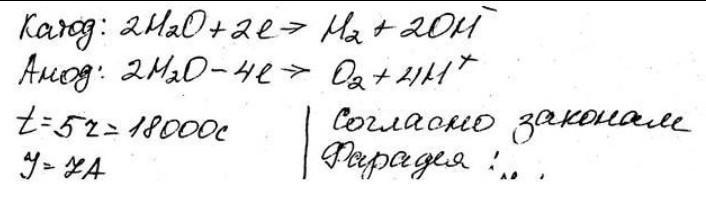 Катод: 2H₂O + 2e → H₂ + 2OH⁻
Анод: 2H₂O − 4e → O₂ + 4H⁺
t = 5ч = 18000с
J = 7A
Согласно законам
Фарадея :